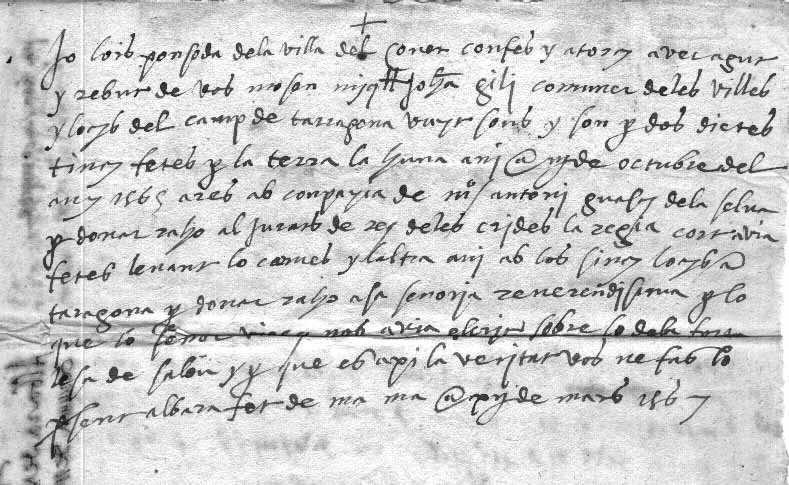 Jo lois ponsoda dela villa del Coner confes y atorch aver agut
y rebut de vos moson miquell Joha gili comuner deles villes
y lochs del camp de tarragona vuyt sous y son p dos dietes
tinch fetes p la terra la huna ani @ de octubre del
any 1565 ares ab conpayia de antoni guasch dela selva
p donar raho al Jurats de deles crides la regia cort avia
fetes levant lo comes y laltra ani ab los sinch lochs a
taragona p donar raho a sa senoria reverendisima p lo
que lo senor nos avia escrit sobre lo dela forta
lesa de salou y p que es axi la veritat vos ne fas lo
psent albara fet de ma ma @ de mars 1567